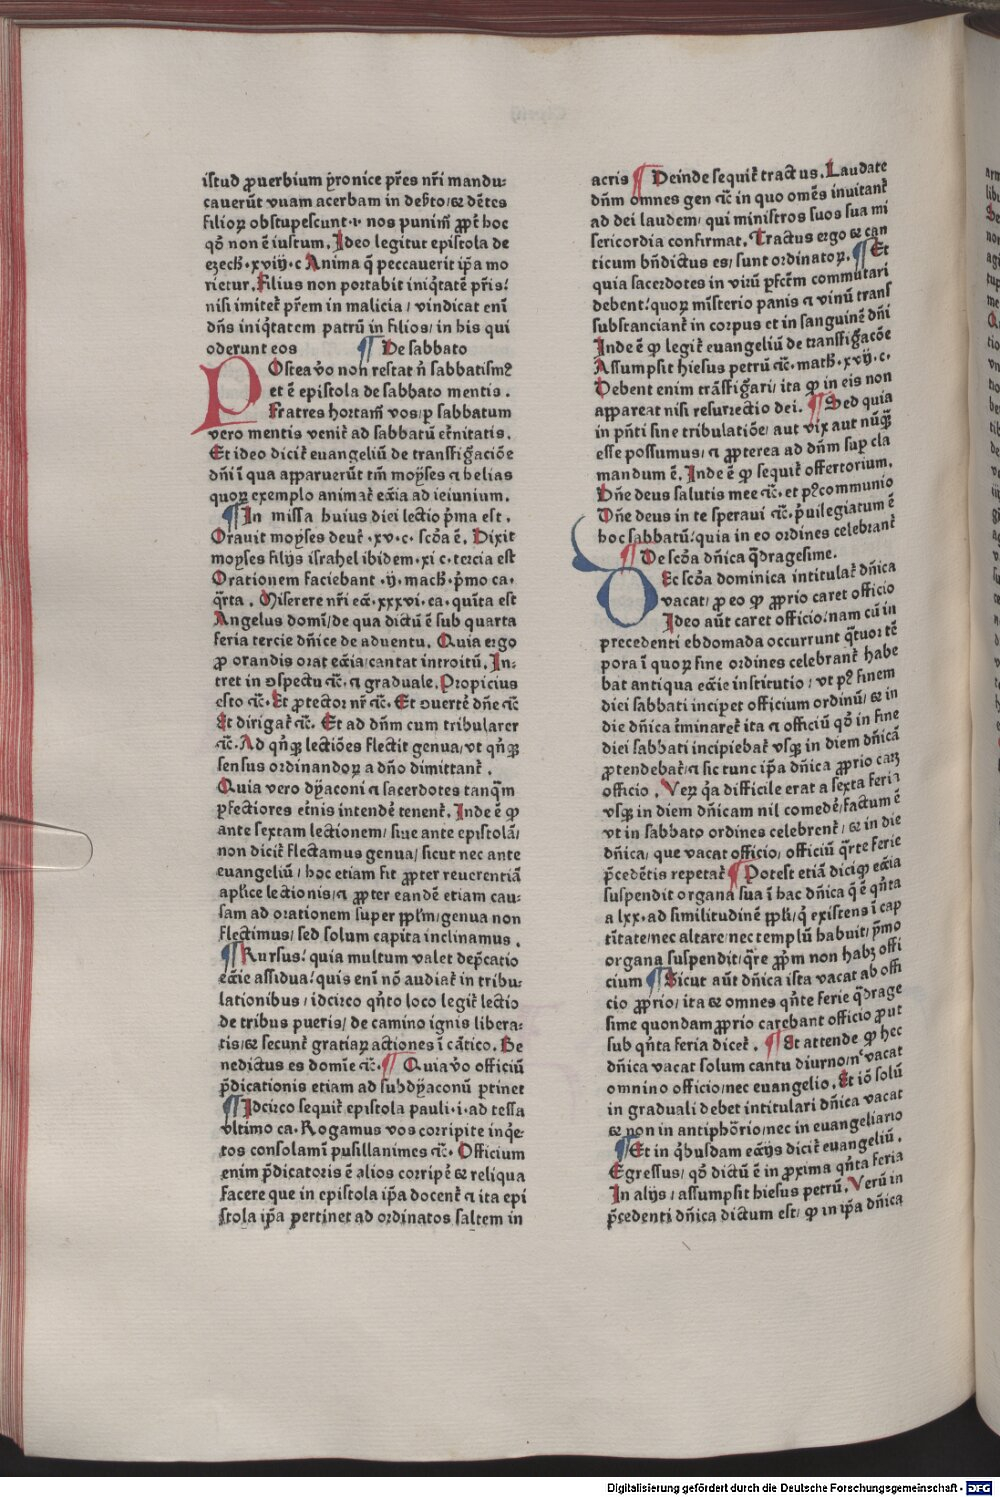 istud ꝓuerbium ẏronice pr̃es nr̃i mandu⸗
cauerūt vuam acerbam in deb̕to/⁊ dētes
filioꝝ obstupescunt.i. nos punim̃ ꝓpt̕ hoc
qɔ̃ non ē iustum. Ideo legitur epistola de
ezech̕.xviij.c Anima q̃ peccauerit ip̃a mo
rietur. Filius non portabit iniq̇tatē pr̃is:
nisi imitet̕ pr̃em in malicia/vindicat eni
dn̄s iniq̇tatem patrū in filios/in his qui
oderunt eos ¶ De sabbato
POstea v̕o non restat n̄ sabbatism9
et ē epistola de sabbato mentis.
Fratres hortam̃ vos/ꝑ sabbatum
vero mentis venit̕ ad sabbatū et̕nitatis.
Et ideo dicit̕ euangeliū de transfig̃acōe
dn̄i ī qua apparuerūt tm̄ moẏses ⁊ helias
quoꝝ exemplo animat̕ ecc̄ia ad ieiunium.
¶ In missa huius diei lectio p̕ma est.
Orauit moẏses deut̕.xv.c. scōa ē. Dixit
moẏses filijs israhel ibidem.xi c. tercia est
Orationem faciebant.ij. mach̕. p̕mo ca.
q̃rta. Miserere nr̃i ec̄.xxxvi.ca. quīta est
Angelus domī/de qua dictū ē sub quarta
feria tercie dn̄ice de aduentu. Quia ergo
ꝓ orandis orat ecc̄ia/cantat introitū. In⸗
tret in ɔspectu ⁊c̄. ⁊ graduale. Propicius
esto ⁊c̄. Et ꝓtector nr̄ ⁊c̄. Et ɔuerte dn̄e ⁊c̄
Et dirigat̕ ⁊c̄. Et ad dn̄m cum tribularer
⁊c̄. Ad qn̄qꝫ lectiōes flectit genua/vt qn̄qꝫ
sensus ordinandoꝝ a dn̄o dimittant̕.
Quia vero dẏaconi ⁊ sacerdotes tanq̃m
ꝑfectiores et̕nis intende tenent̕. Inde ē ꝙ
ante sextam lectionem/siue ante epistolā/
non dicit̕ flectamus genua/sicut nec ante
euangeliū/hoc etiam fit ꝓpter reuerentiā
apl̕ice lectionis/⁊ ꝓpter eandē etiam cau⸗
sam ad orationem super ppl̕m/genua non
flectimus/sed solum capita inclinamus.
¶ Rursus: quia multum valet dep̕catio
ecc̄ie assidua: quis eni nō audiat̕ in tribu⸗
lationibus/idcirco qn̄to loco legit̕ lectio
de tribus pueris/de camino ignis libera⸗
tis/⁊ secunt̕ gratiaꝝ actiones ī cātico. Be
nedictus es domīe ⁊c̄. ¶ Quia v̕o officiū
p̕dicationis etiam ad subdẏaconū ꝑtinet
¶ Idcirco sequit̕ epistola pauli.i. ad tessa
vltimo ca. Rogamus vos corripite inq̇e⸗
tos consolamī pusillanimes ⁊c̄. Officium
enim p̕dicatoris ē alios corripe ⁊ reliqua
facere que in epistola ip̃a docent̕ ⁊ ita epi
stola ip̃a pertinet ad ordinatos saltem in
acris ¶ Deinde sequit̕ tractus. Laudate
dn̄m omnes gen ⁊c̄ in quo omēs inuitant̕
ad dei laudem/qui ministros suos sua mi
sericordia confirmat. Tractus ergo ⁊ can
ticum bn̄dictus es/sunt ordinatoꝝ. ¶ Et
quia sacerdotes in virū ꝑfcm̄ commutari
debent: quoꝝ mīsterio panis ⁊ vinū trans
substanciant̕ in corpus et in sanguinē dn̄i
Inde ē ꝙ legit̕ euangeliū de transfig̃acōe
Assumpsit hiesus petrū ⁊c̄. math̕.xvij.c.
Debent enim trāsfig̃ari/ita ꝙ in eis non
appareat nisi resurrectio dei. ¶ Sed quia
in pn̄ti sine tribulatiōe/aut vix aut nūqꝫ
esse possumus/⁊ ꝓpterea ad dn̄m suꝑ cla
mandum ē. Inde ē ꝙ sequit̕ offertorium.
Dn̄e deus salutis mee ⁊c̄. et p9communio
Dn̄e deus in te speraui ⁊c̄. p̕uilegiatum ē
hoc sabbatū: quia in eo ordines celebrant̕
¶ De scōa dn̄ica q̃dragesime.
HEc scōa dominica intitulat̕ dn̄ica
vacat/ꝓ eo ꝙ ꝓprio caret officio
Ideo aūt caret officio: nam cū in
precedenti ebdomada occurrunt q̃tuor tē
pora ī quoꝝ fine ordines celebrant̕ habe
bat antiqua ecc̄ie institutio/vt p9 finem
diei sabbati inciperet officium ordinū/⁊ in
die dn̄ica t̕minaret̕ ita ⁊ officiū qɔ̃ in fine
diei sabbati incipiebat̕ vsqꝫ in diem dn̄icā
ꝓtendebat̕/⁊ sic tunc ip̃a dn̄ica ꝓprio carꝫ
officio. Veꝝ q̇a difficile erat a sexta feria
vsqꝫ in diem dn̄icam nil comede̕/factum ē
vt in sabbato ordines celebrent̕/⁊ in die
dn̄ica/que vacat officio/officiū q̃rte ferie
p̕cedētis repetat̕ ¶ Potest etiā dici ꝙ ecc̄ia
suspendit organa sua ī hac dn̄ica q̃ ē qn̄ta
a lxx. ad similitudinē ppl̕i/q̇ existens ī cap
tītate/nec altare/nec templū habuit/p̕mo
organa suspendit/q̃re ꝓp̕m non habꝫ offi
cium ¶ Sicut aūt dn̄ica ista vacat ab offi
cio ꝓprio/ita ⁊ omnes qn̄te ferie q̃drage
sime quondam ꝓprio carebant officio ꝓut
sub qn̄ta feria dicet̕. ¶ Et attende ꝙ hec
dn̄ica vacat solum cantu diurno/nͨ vacat
omnino officio/nec euangelio. Et iō solū
in graduali debet intitulari dn̄ica vacat
⁊ non in antiphōrio/nec in euangeliario
¶ Et in q̇busdam ecc̄ijs dicit̕ euangeliū.
Egressus/qɔ̃ dictū ē in ꝓxima qn̄ta feria
In alijs/assumpsit hiesus petrū. Verū in
p̕cedenti dn̄ica dictum est/ꝙ in ip̃a dn̄ica
Digitalisierung gefördert durch die Deutsche Forschungsgemeinschaft - DFG